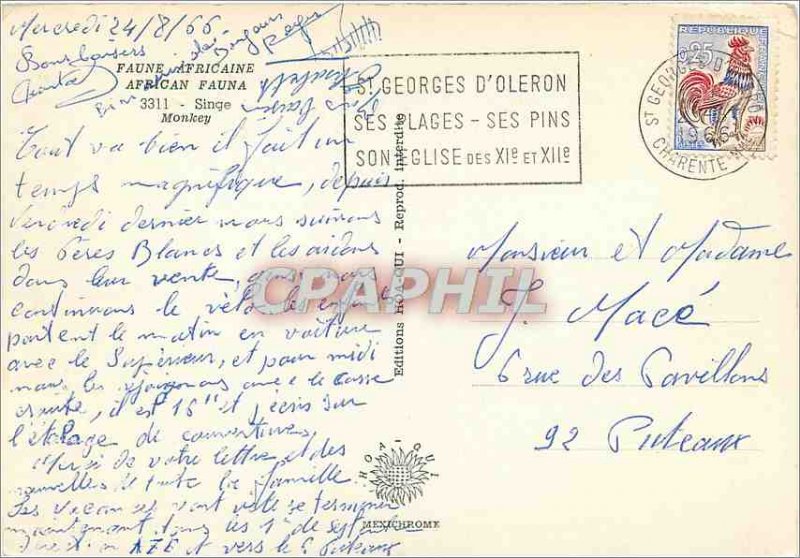 Mercredi 24/8/66
Bons baisers
Chantal
FAUNE AFRICAINE
AFRICAN FAUNA
3311 - Singe
Monkey
Tout va bien il fait un
temps magnifique, depuis
vendredi dernier nous suivons
les Pères Blancs et les aidons
dans leur vente,
continuons le vélo les enfants
partent le matin en voiture
avec le Supérieur, et pour midi
nous les rejoignons avec le casse
croûte, il est 16 h et j'écris sur
l'étalage de couvertures,
Merci de votre lettre et des
nouvelles de toute la famille
Les vacances vont vite se terminer
maintenant tous les 1er de septembre
direction et vers le 6 Puteaux
Editions HOA-QUI - Reprod. interdite
HOA-QUI
MEXICHROME
ST GEORGES D'OLERON
SES PLAGES - SES PINS
SON EGLISE DES XIe ET XIIe
REPUBLIQUE FRANÇAISE
0,25
ST GEORGES D'OLERON
1966
CHARENTE Mme
Monsieur et Madame
J. Macé
6 rue des Pavillons
92 Puteaux
CPAPHIL